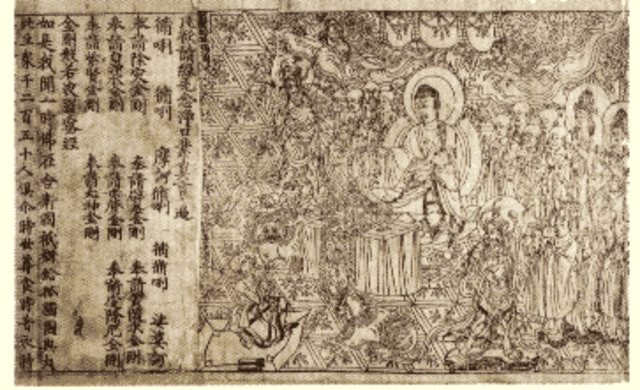 凡欲讀經先念淨口業真言一遍
脩唎 脩唎 摩訶脩唎 脩脩唎 娑婆訶
奉請除災金剛 奉請辟毒金剛 奉請黃隨求金剛
奉請白淨水金剛 奉請赤聲金剛 奉請定除厄金剛
奉請紫賢金剛 奉請大神金剛
金剛般若波羅蜜經
如是我聞一時佛在舍衛國祇樹給孤獨園與大
比丘眾千二百五十人俱爾時世尊食時著衣持